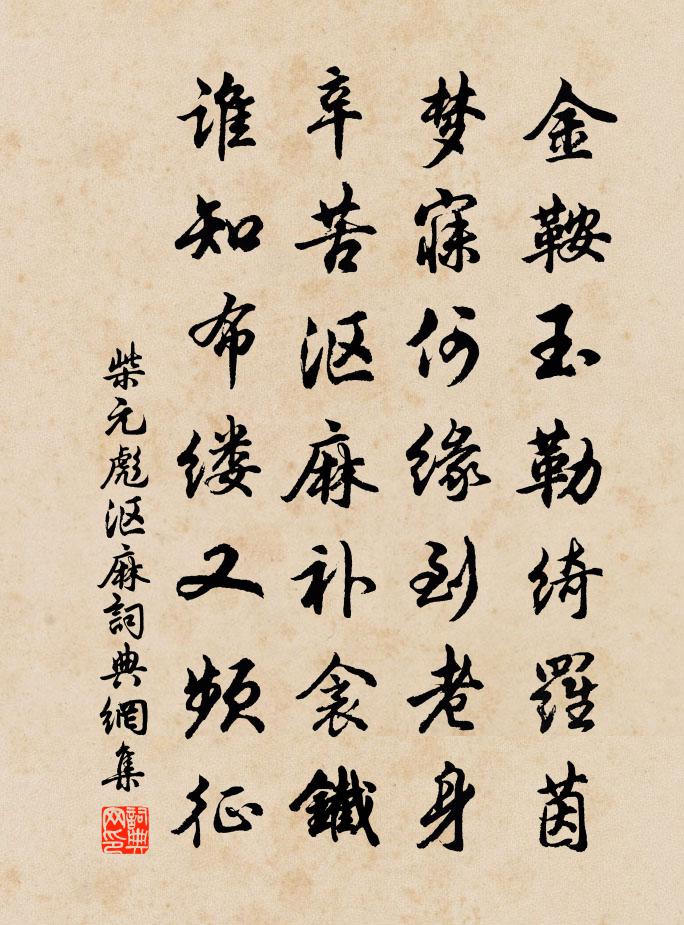 金鞍玉勒绮羅茵
梦寐何缘到老身
辛苦沤麻补衾鐵
谁知布缕又频征
柴元彪沤麻詞典網集
詞典网印